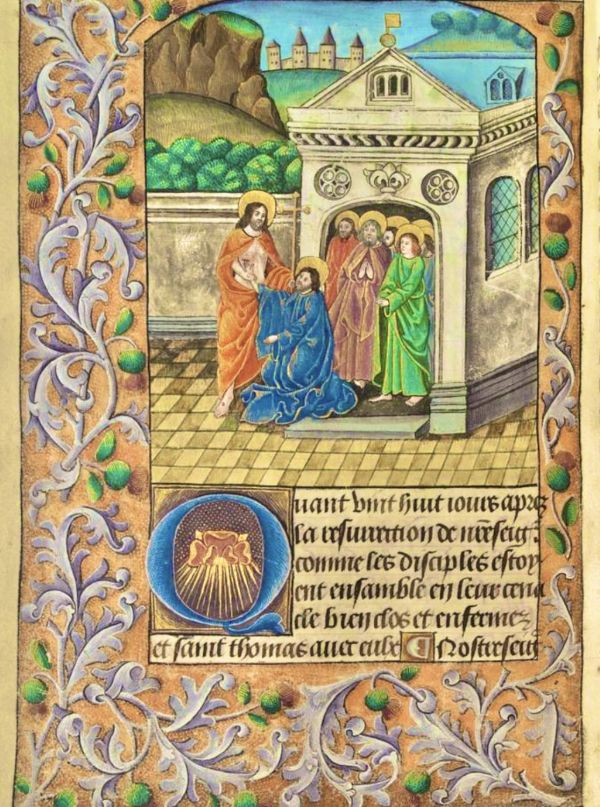 Quant vint huit iours apres
la resurrection de n̄reseigr̄
comme les disciples estoy
ent ensamble en leur cena
cle bien clos et enfermez
et saint thomas auec eulx Nostreseigr̄